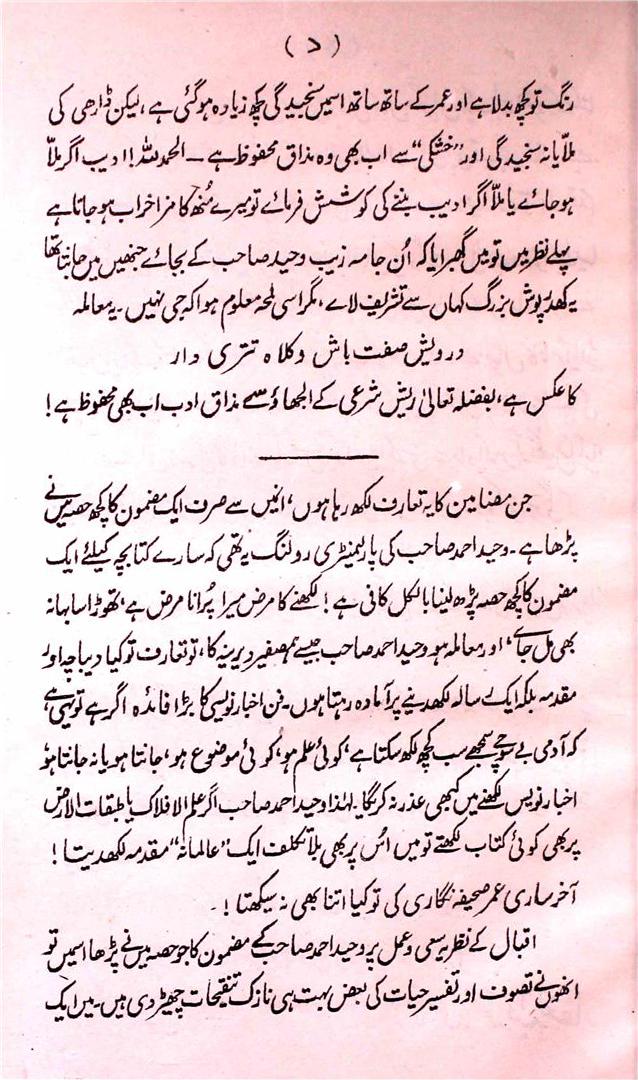 (۷)
رنگ تو کچھ بدلا ہے اور عمر کے ساتھ ساتھ اسمیں سنجیدگی کچھ زیادہ ہوگئی ہے، لیکن ڈارھی کی
ملّایانہ سنجیدگی اور "خشکی" سے اب بھی وہ مذاق محفوظ ہے ۔ الحمد للہ!! ادیب اگر ملّا
ہوجائے یا ملّا اگر ادیب بننے کی کوشش فرمائے تو میرے مُنھ کا مزا خراب ہوجاتا ہے
پہلے نظر میں تو میں گھبرایا کہ اُن جامہ زیب وحید صاحب کے بجائے جنھیں میں جانتا تھا
یہ کھدر پوش بزرگ کہاں سے تشریف لائے، مگر اسی لمحہ معلوم ہوا کہ جی نہیں۔ یہ معاملہ
درویش صفت باش و کلاہ تتری دار
کا عکس ہے، بفضلہ تعالیٰ ریش شرعی کے الجھاؤ سے مذاق ادب اب بھی محفوظ ہے!
جن مضامین کا یہ تعارف لکھ رہا ہوں، انیں سے صرف ایک مضمون کا کچھ حصہ میں نے
پڑھا ہے۔ وحید احمد صاحب کی پارلیمنٹری رولنگ یہ تھی کہ سارے کتابچہ کیلئے ایک
مضمون کا کچھ حصہ پڑھ لینا بالکل کافی ہے! لکھنے کا مرض میرا پُرانا مرض ہے، تھوڑا سا بہانہ
بھی مل جائے، اور معاملہ ہو وحید احمد صاحب جیسے ہمصفیر دیرینہ کا، تو تعارف تو کیا دیباچہ اور
مقدمہ بلکہ ایک رسالہ لکھدینے پر آمادہ رہتا ہوں۔ فن اخبار نویسی کا بڑا فائدہ اگر ہے تو یہی ہے
کہ آدمی بے سوچے سمجھے سب کچھ لکھ سکتا ہے، کوئی علم ہو، کوئی موضوع ہو، جانتا ہو یا نہ جانتا ہو
اخبار نویس لکھنے میں کبھی عذر نہ کریگا۔ لہٰذا وحید احمد صاحب اگر علم الافلاک یا طبقات الارض
پر بھی کوئی کتاب لکھتے تو میں اُس پر بھی بلا تکلف ایک "عالمانہ" مقدمہ لکھ دیتا!
آخر ساری عمر صحیفہ نگاری کی تو کیا اتنا بھی نہ سیکھتا!۔
اقبال کے نظریہ سعی و عمل پر وحید احمد صاحب کے مضمون کا جو حصہ میں نے پڑھا اسمیں تو
انھوں نے تصوف اور تفسیر حیات کی بعض بہت ہی نازک تنقیحات چھیڑ دی ہیں۔ میں ایک